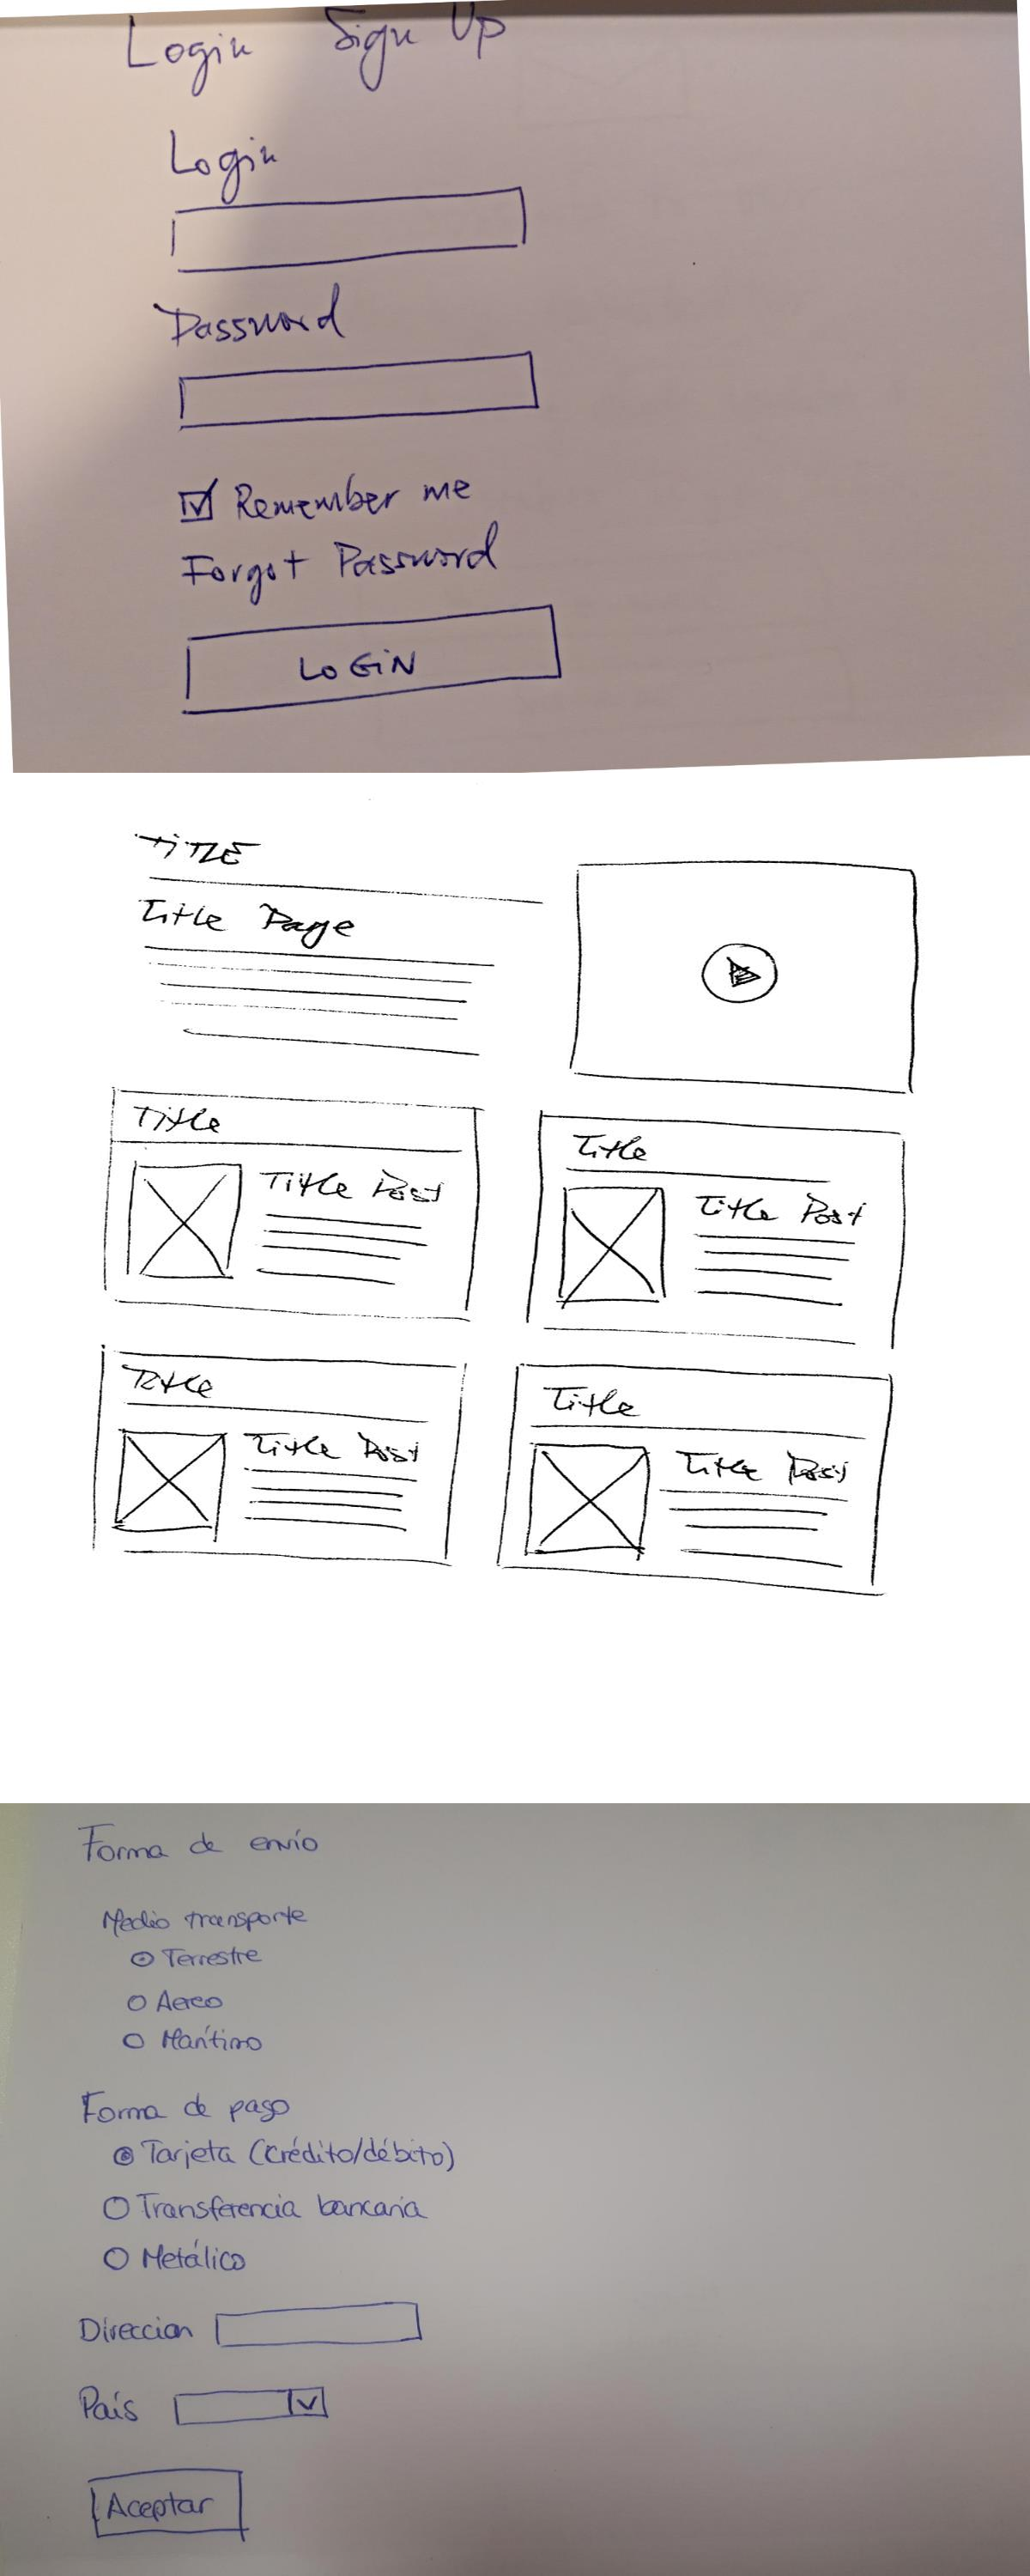 Login Sign Up
Login
Password
Remember me
Forgot Password
LOGiN
TiTLE
Title Page
Title
Title Post
Title
Title Post
Title
Title Post
Title
Title Post
Forma de envío
Medio transporte
Terrestre
Aereo
Marítimo
Forma de pago
Tarjeta (crédito/débito)
Transferencia bancaria
Metálico
Direccion
País
Aceptar